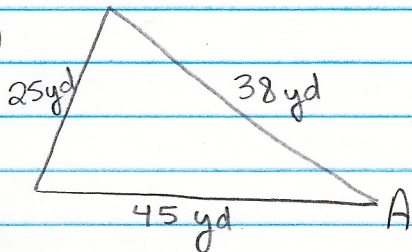 25yd
38 yd
45 yd
A